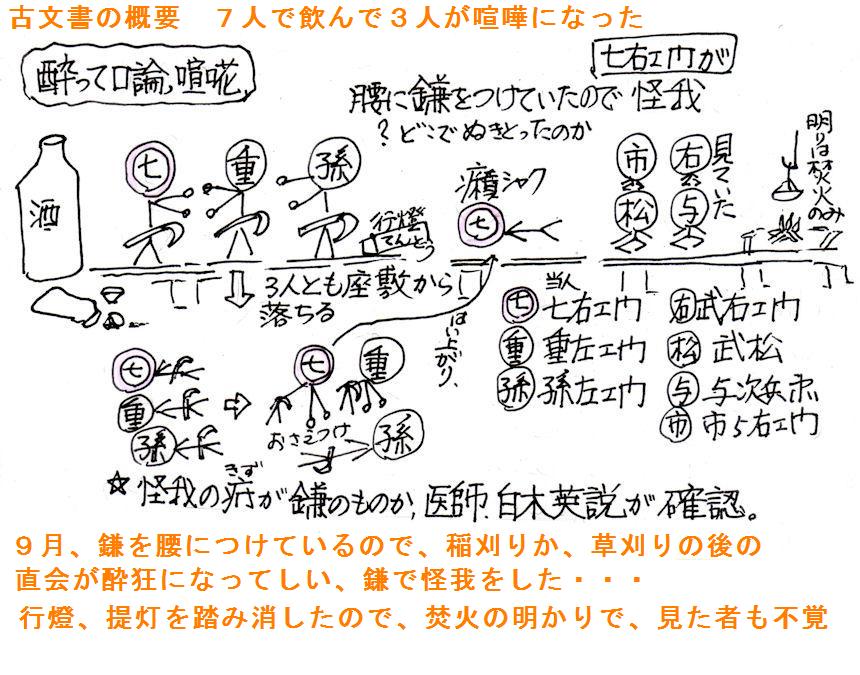 古文書の概要　７人で飲んで３人が喧嘩になった
酔って口論,喧嘩
七右エ门が
腰に鎌をつけていたので 怪我
？どこでぬきとったのか
酒
七
重
孫
行燈
てんとう
シャク
七
市
右
松
与
見ていた
明りは焚火のみ
3人とも座敷から
落ちる
はい上がり、
当人
七 七右エウ
重 重左エウ
孫 孫左エウ
右 武右エウ
松 武松
与 与次兵
市 市ら右エウ
七
重
孫
七
重
おさえつけ
孫
きず
☆怪我の疵が鎌のものか,医師、白木英説が確認。
９月、鎌を腰につけているので、稲刈りか、草刈りの後の
直会が酔狂になってしい、鎌で怪我をした・・・
行燈、提灯を踏み消したので、焚火の明かりで、見た者も不覚